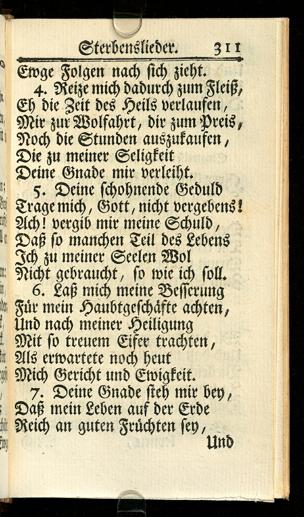 Sterbenslieder. 311
Ewge Folgen nach sich zieht.
4. Reize mich dadurch zum Fleiß,
Eh die Zeit des Heils verlaufen,
Mir zur Wolfahrt, dir zum Preis,
Noch die Stunden auszukaufen,
Die zu meiner Seligkeit
Deine Gnade mir verleiht.
5. Deine schohnende Geduld
Trage mich, Gott, nicht vergebens!
Ach! vergib mir meine Schuld,
Daß so manchen Teil des Lebens
Ich zu meiner Seelen Wol
Nicht gebraucht, so wie ich soll.
6. Laß mich meine Besserung
Für mein Haubtgeschäfte achten,
Und nach meiner Heiligung
Mit so treuem Eifer trachten,
Als erwartete noch heut
Mich Gericht und Ewigkeit.
7. Deine Gnade steh mir bey,
Daß mein Leben auf der Erde
Reich an guten Früchten sey,
Und